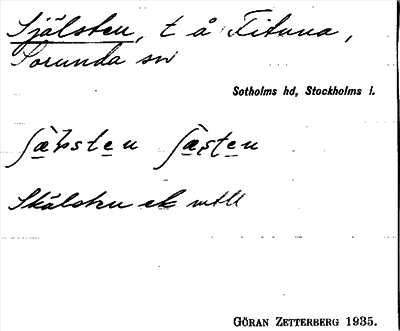 Själsten, t å Fituna,
Sorunda sn
Sotholms hd, Stockholms l.
Skälsten ek mtll
GÖRAN ZETTERBERG 1935.